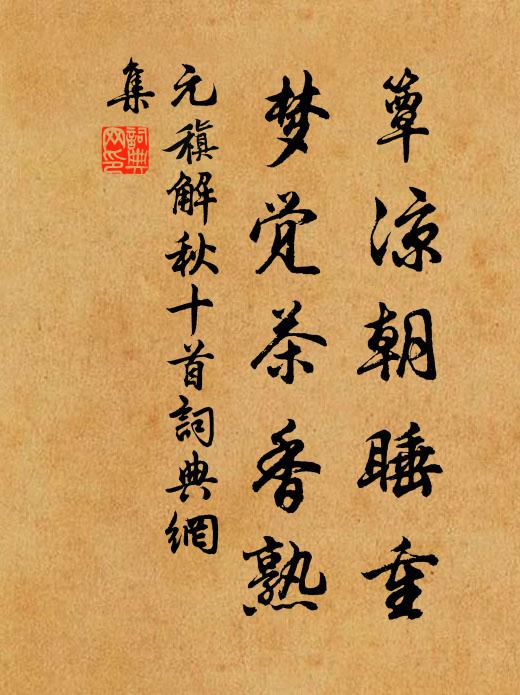 簟凉朝睡重
梦觉茶香熟
元稹解秋十首詞典網
集
詞典網印